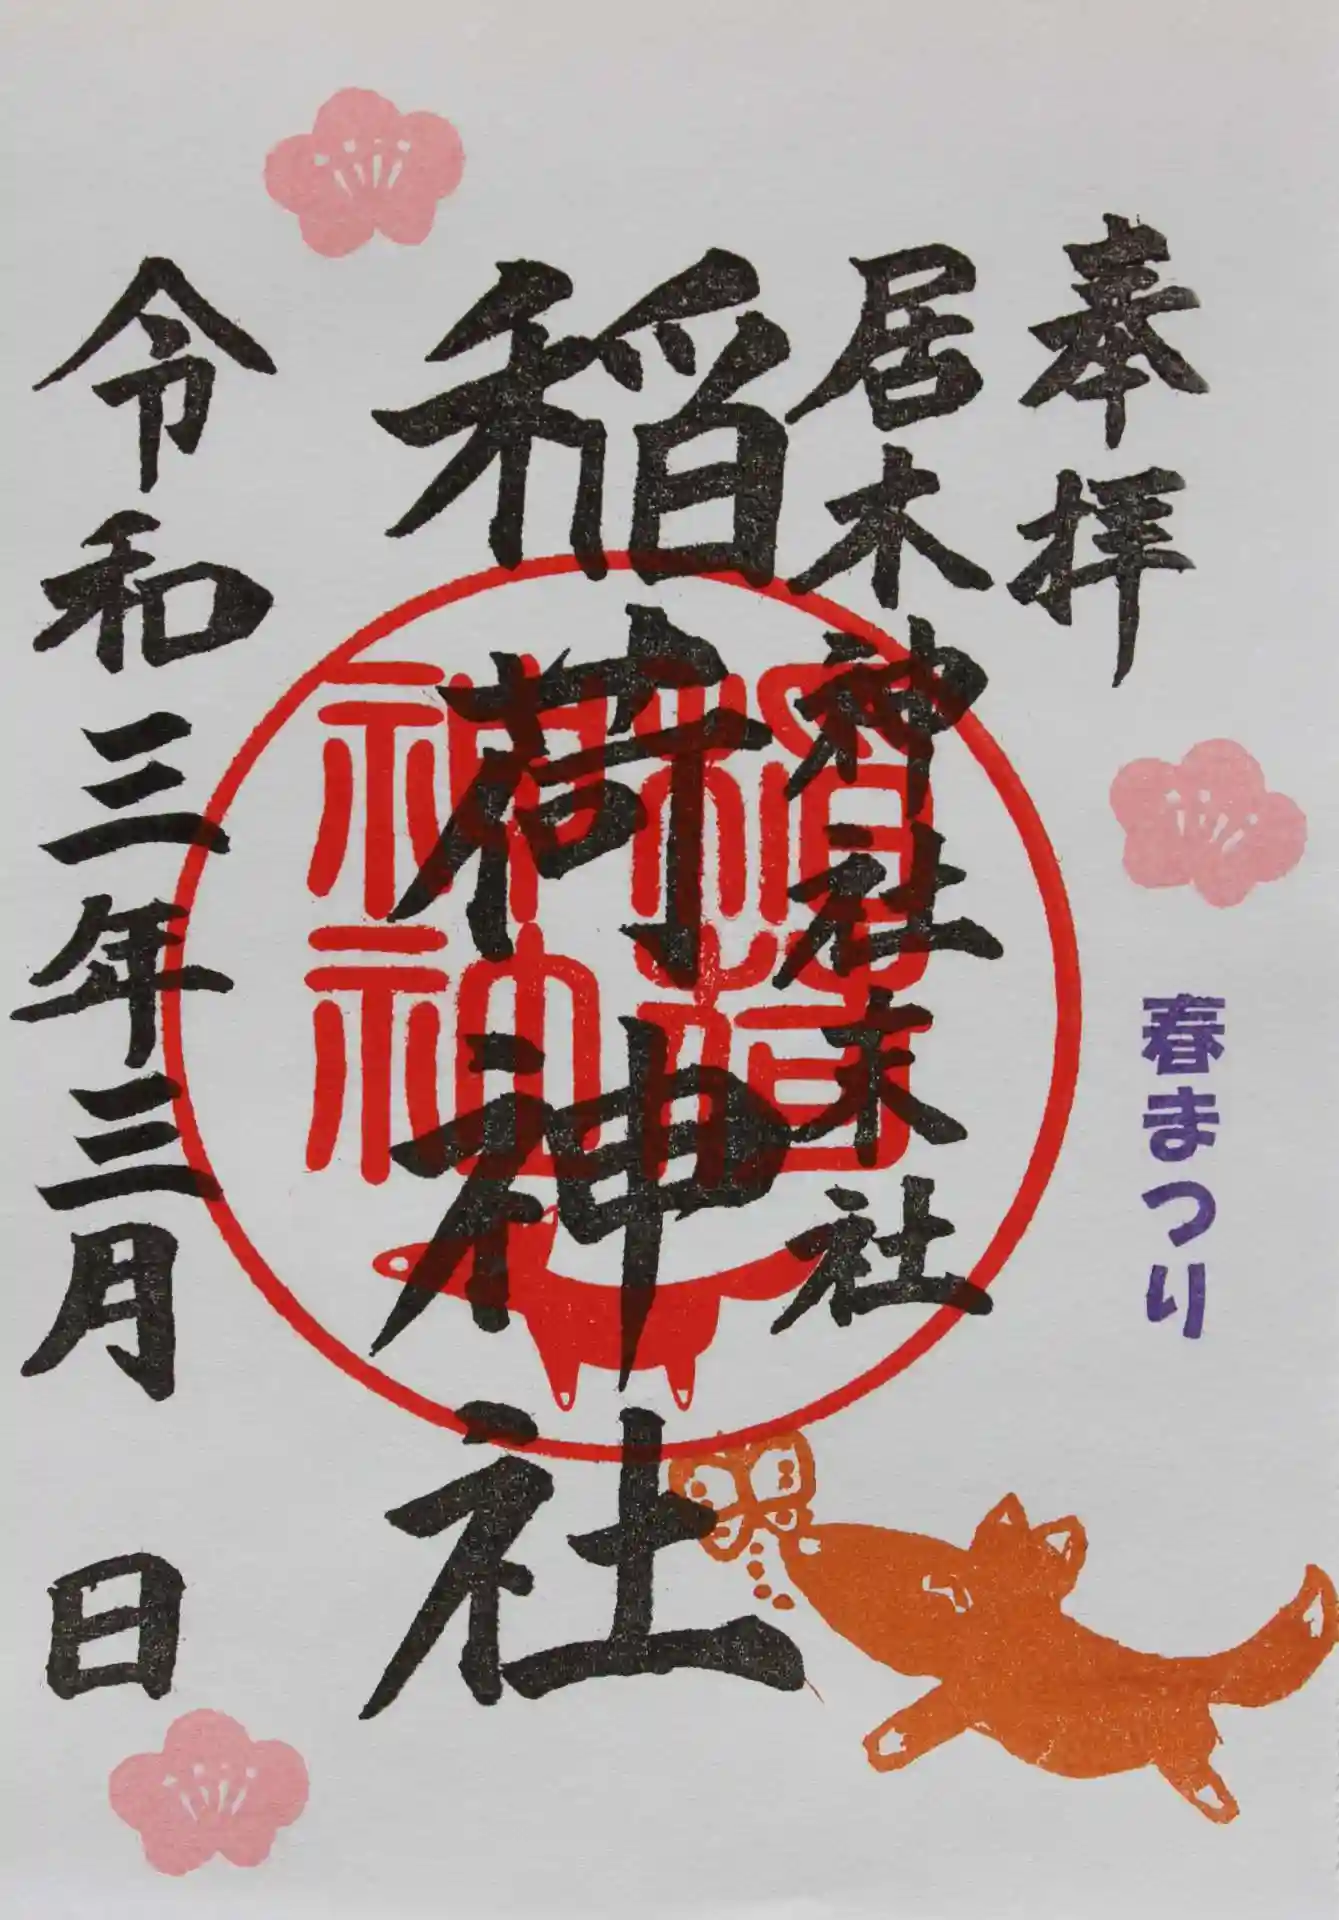 奉拝
春まつり
居木神社末社
稲荷神社
令和三年三月 日